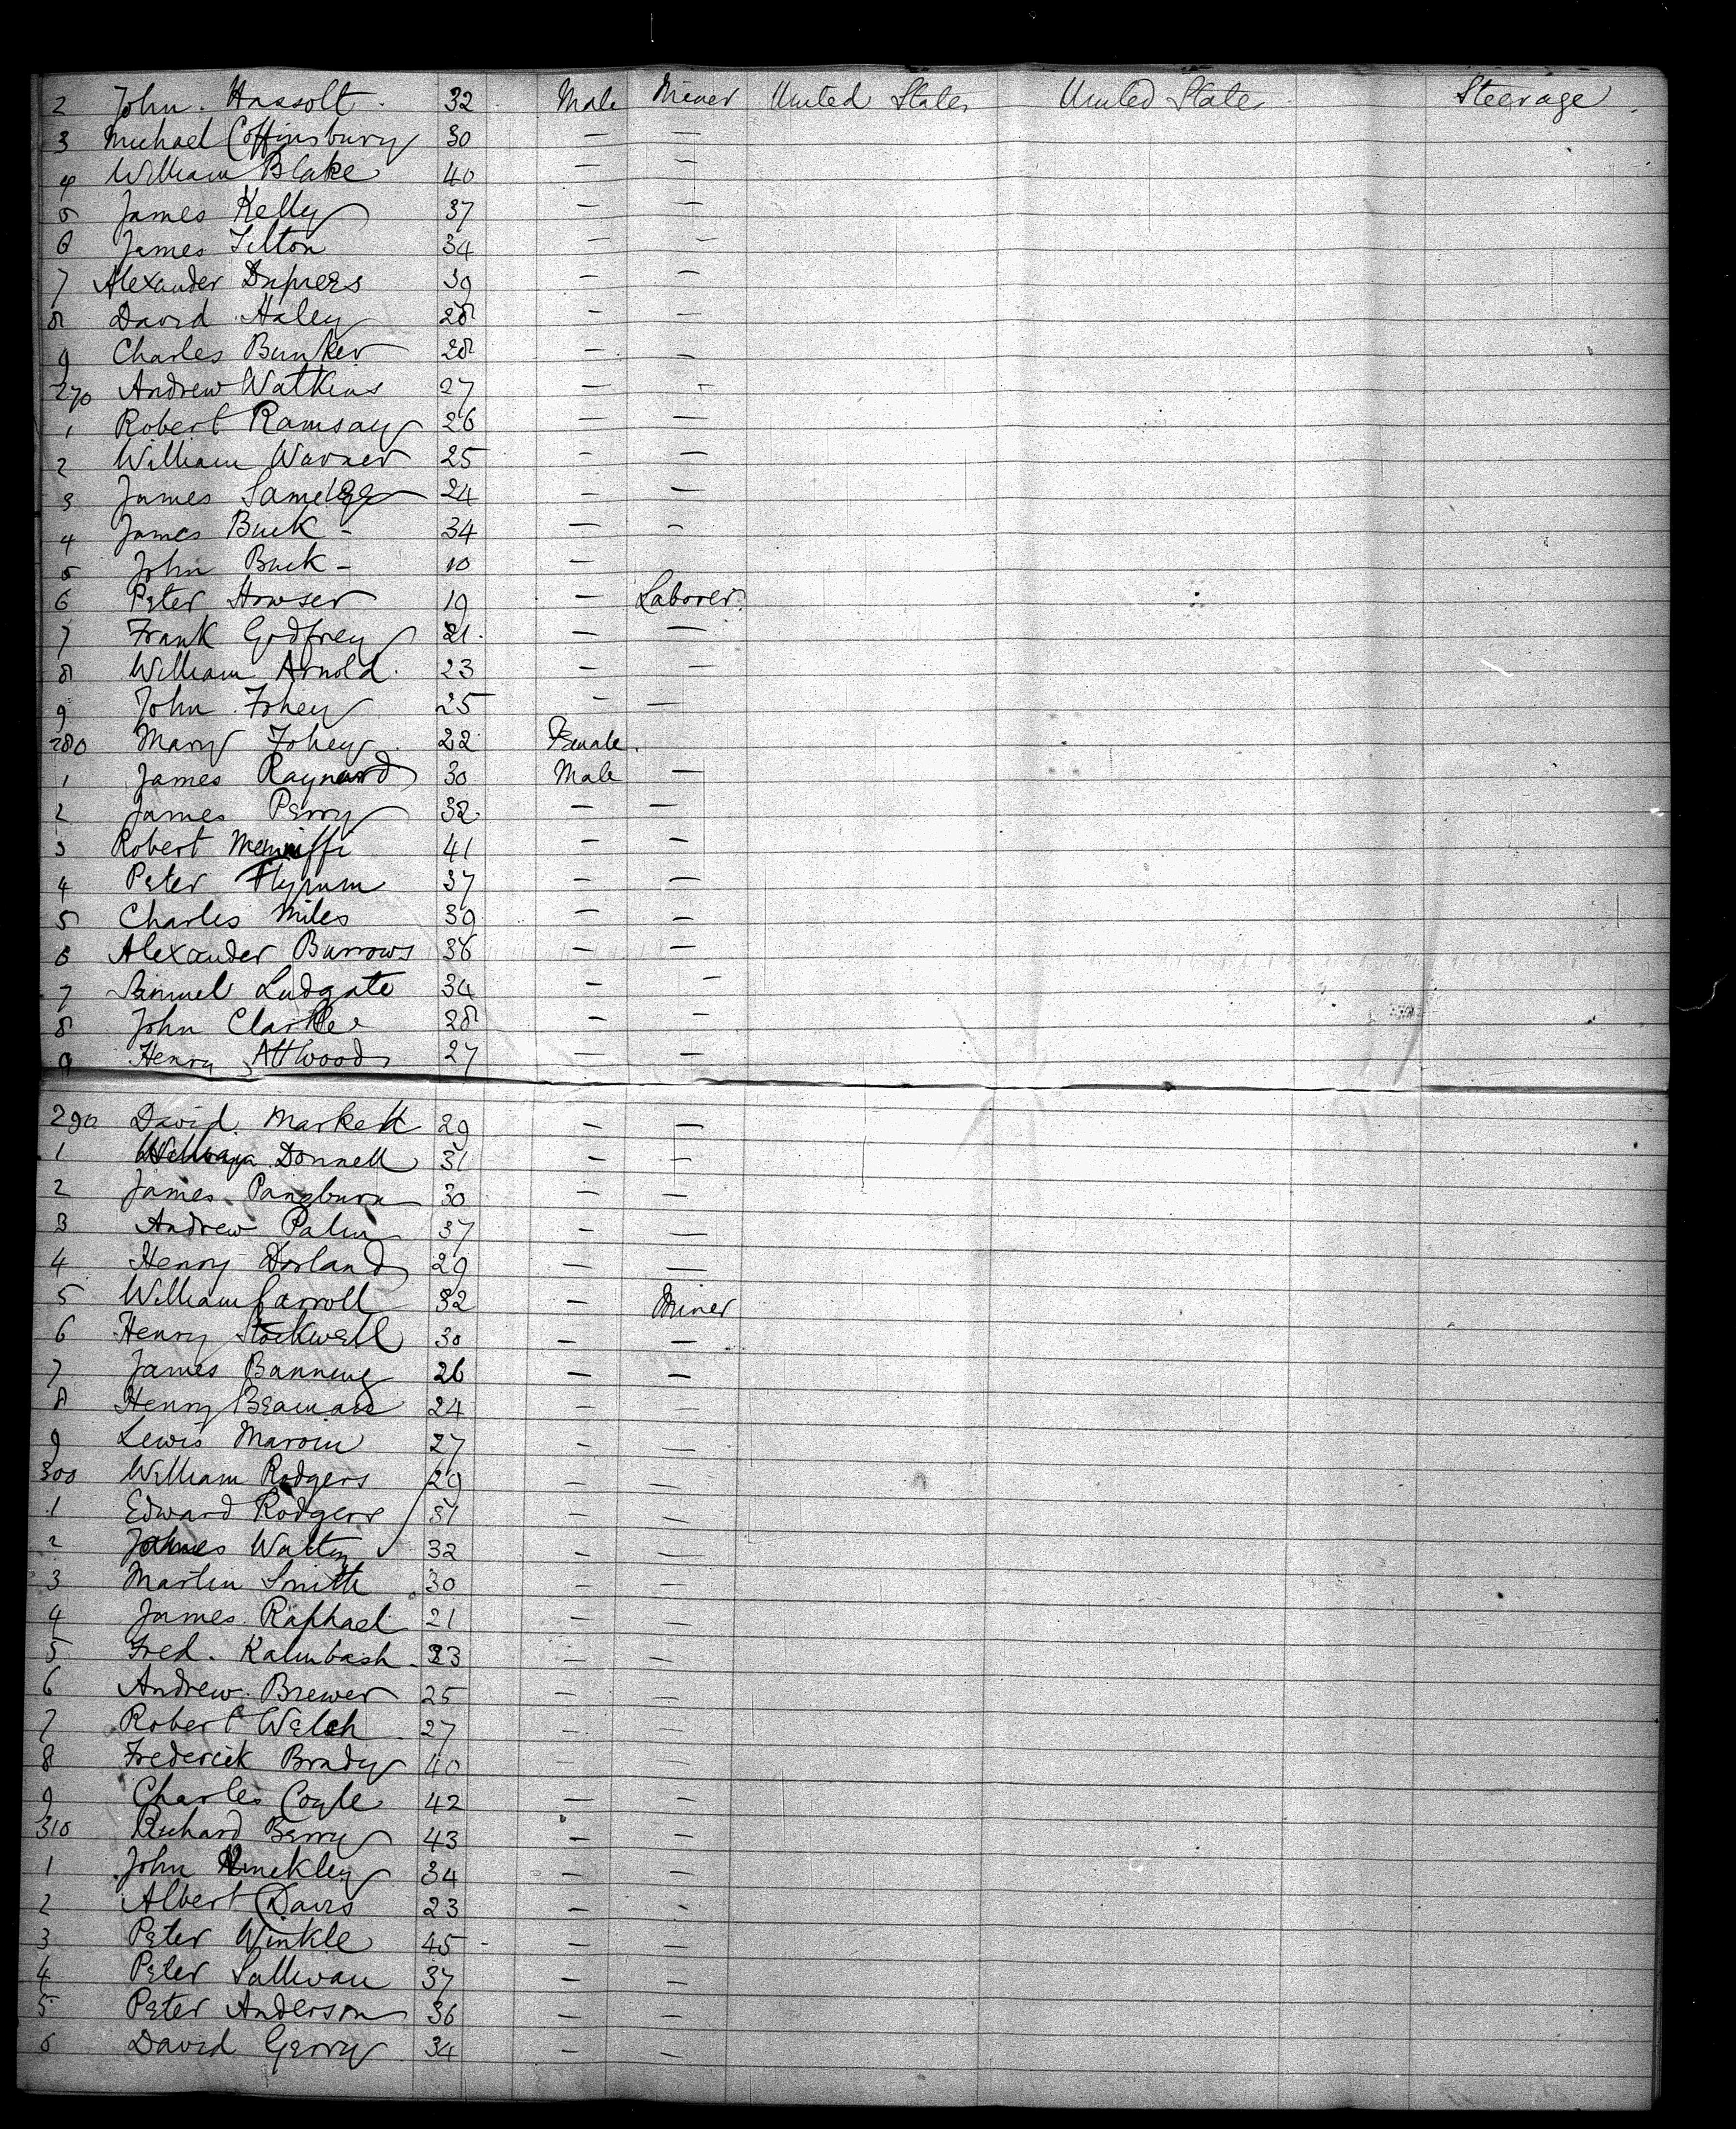 2 John Hassolt 32 Male Miner United States United States Steerage
3 Michael Coffinsbury 30 — —
4 William Blake 40 — —
5 James Kelly 37 — —
6 James Tilton 34 — —
7 Alexander 39 — —
8 David Haley 28 — —
9 Charles Bunker 28 — —
270 Andrew Watkins 27 — —
1 Robert Ramsay 26 — —
2 William Warner 25 — —
3 James 24 — —
4 James Buck - 34 — —
5 John Buck - 10 —
6 Peter Howser 19 — Laborer.
7 Frank Godfrey 21. — —
8 William Arnold. 23 — —
9 John Fohey 25 — —
280 Mary Fohey 22 Female.
1 James Raynard 30 Male —
2 James Perry 32 — —
3 Robert 41 — —
4 Peter 37 — —
5 Charles Miles 39 — —
6 Alexander Burrows 36 — —
7 Samuel Ludgate 34 — —
8 John Clarke 28 — —
9 Henry Attwood 27 — —
290 David Markett 29 — —
1 Donnell 31 — —
2 James Pangburn 30 — —
3 Andrew Palm 37 — —
4 Henry Dorland 29 — —
5 William Carroll 32 — Miner
6 Henry Stockwell 30 — —
7 James Banning 26 — —
8 Henry Beaman 24 — —
9 Lewis Marvin 27 — —
300 William Rodgers 29 — —
1 Edward Rodgers 31 — —
2 James 32 — —
3 Martin Smith 30 — —
4 James Raphael 21 — —
5 Fred. Kalmbash 23 — —
6 Andrew Brewer 25 — —
7 Robert Welch 27 — —
8 Frederick Brady 40 — —
9 Charles Coyle 42 — —
310 Richard Berry 43 — —
1 John Hinckley 34 — —
2 Albert Davis 23 — -
3 Peter Winkle 45 - — —
4 Peter Sullivan 37 — —
5 Peter Anderson 36 — —
6 David Gerry 34 — —